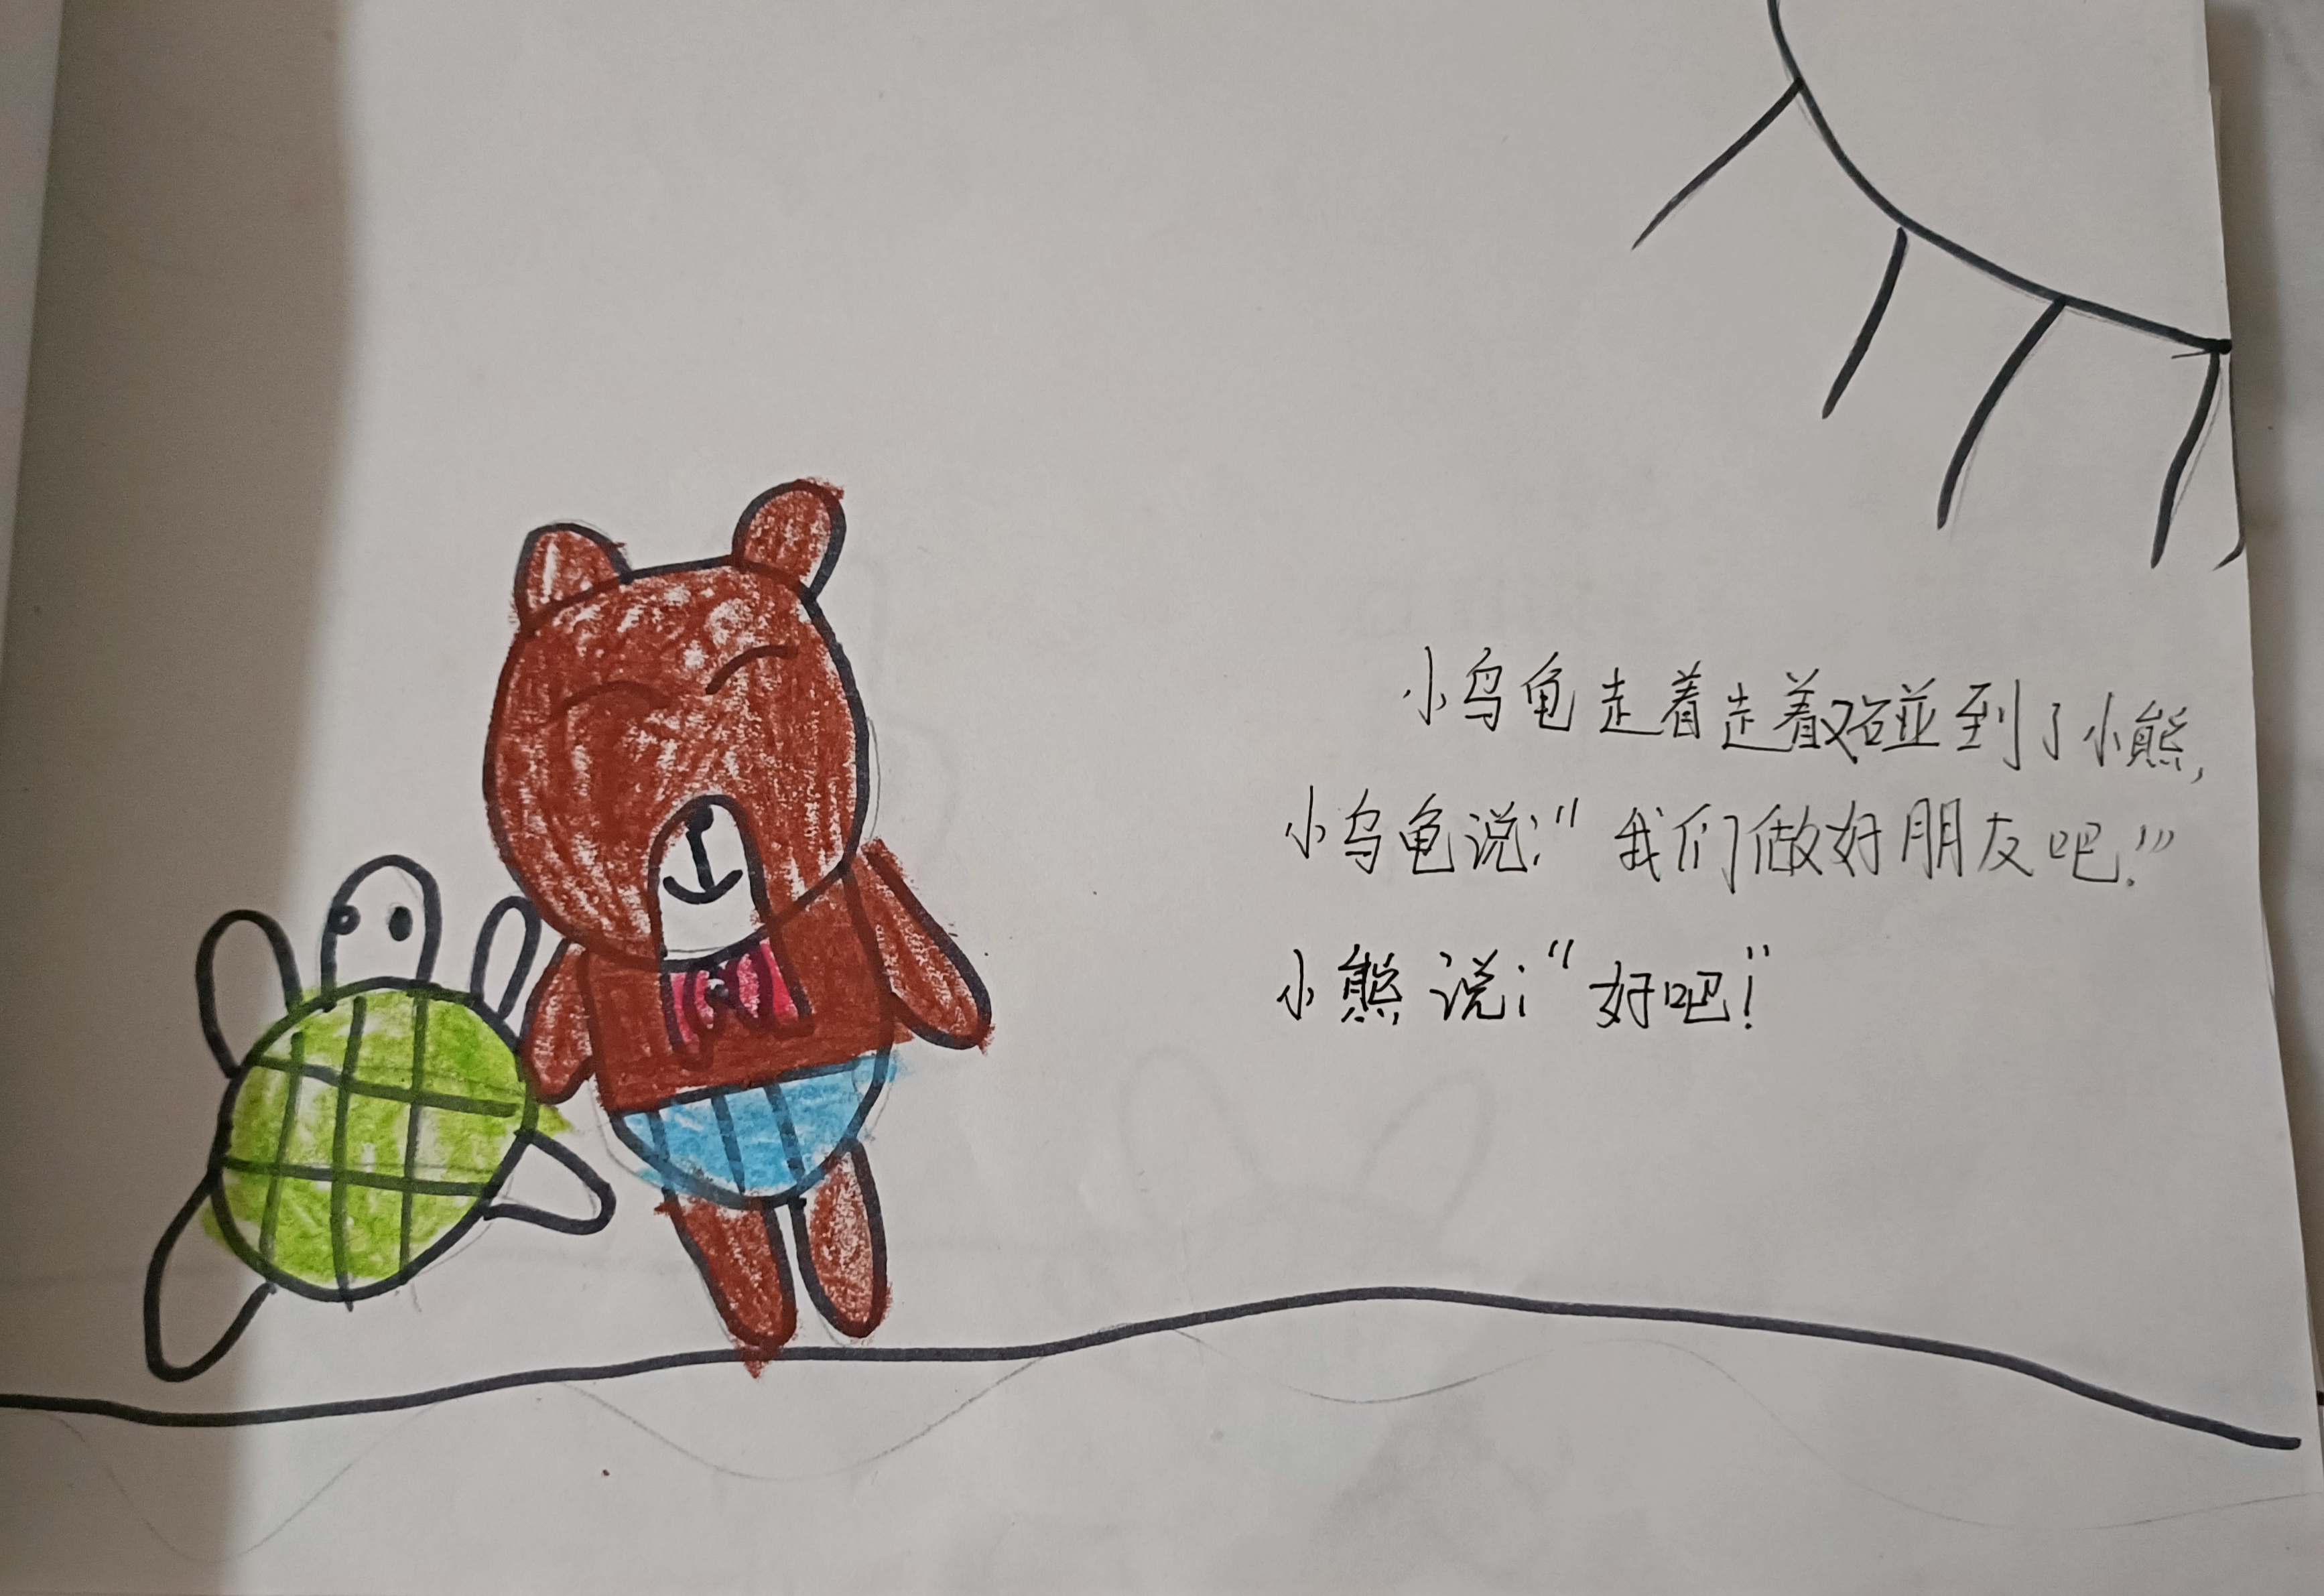 小乌龟走着走着又碰到了小熊,
小乌龟说:“我们做好朋友吧!”
小熊说:“好吧!”